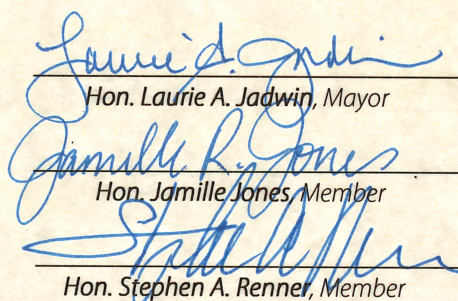 Laurie A. Jadwin
Hon. Laurie A. Jadwin, Mayor
Jamille R. Jones
Hon. Jamille Jones, Member
Stephen A Renner
Hon. Stephen A. Renner, Member